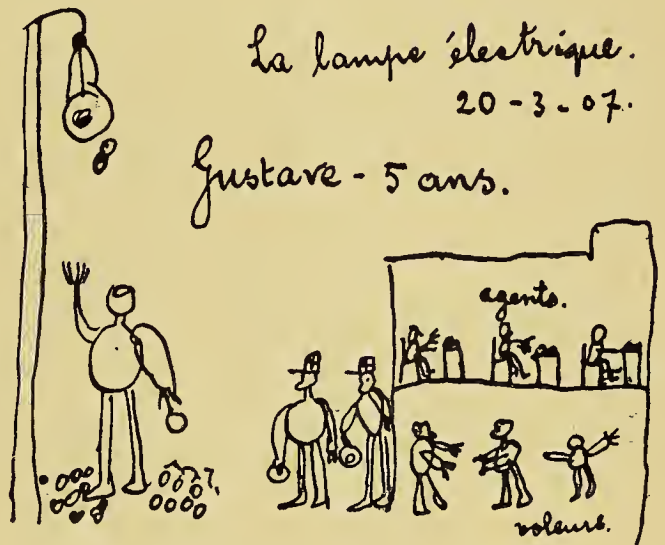 La lampe électrique.
20-3-07.
Gustave - 5 ans.
agents.
voleurs.